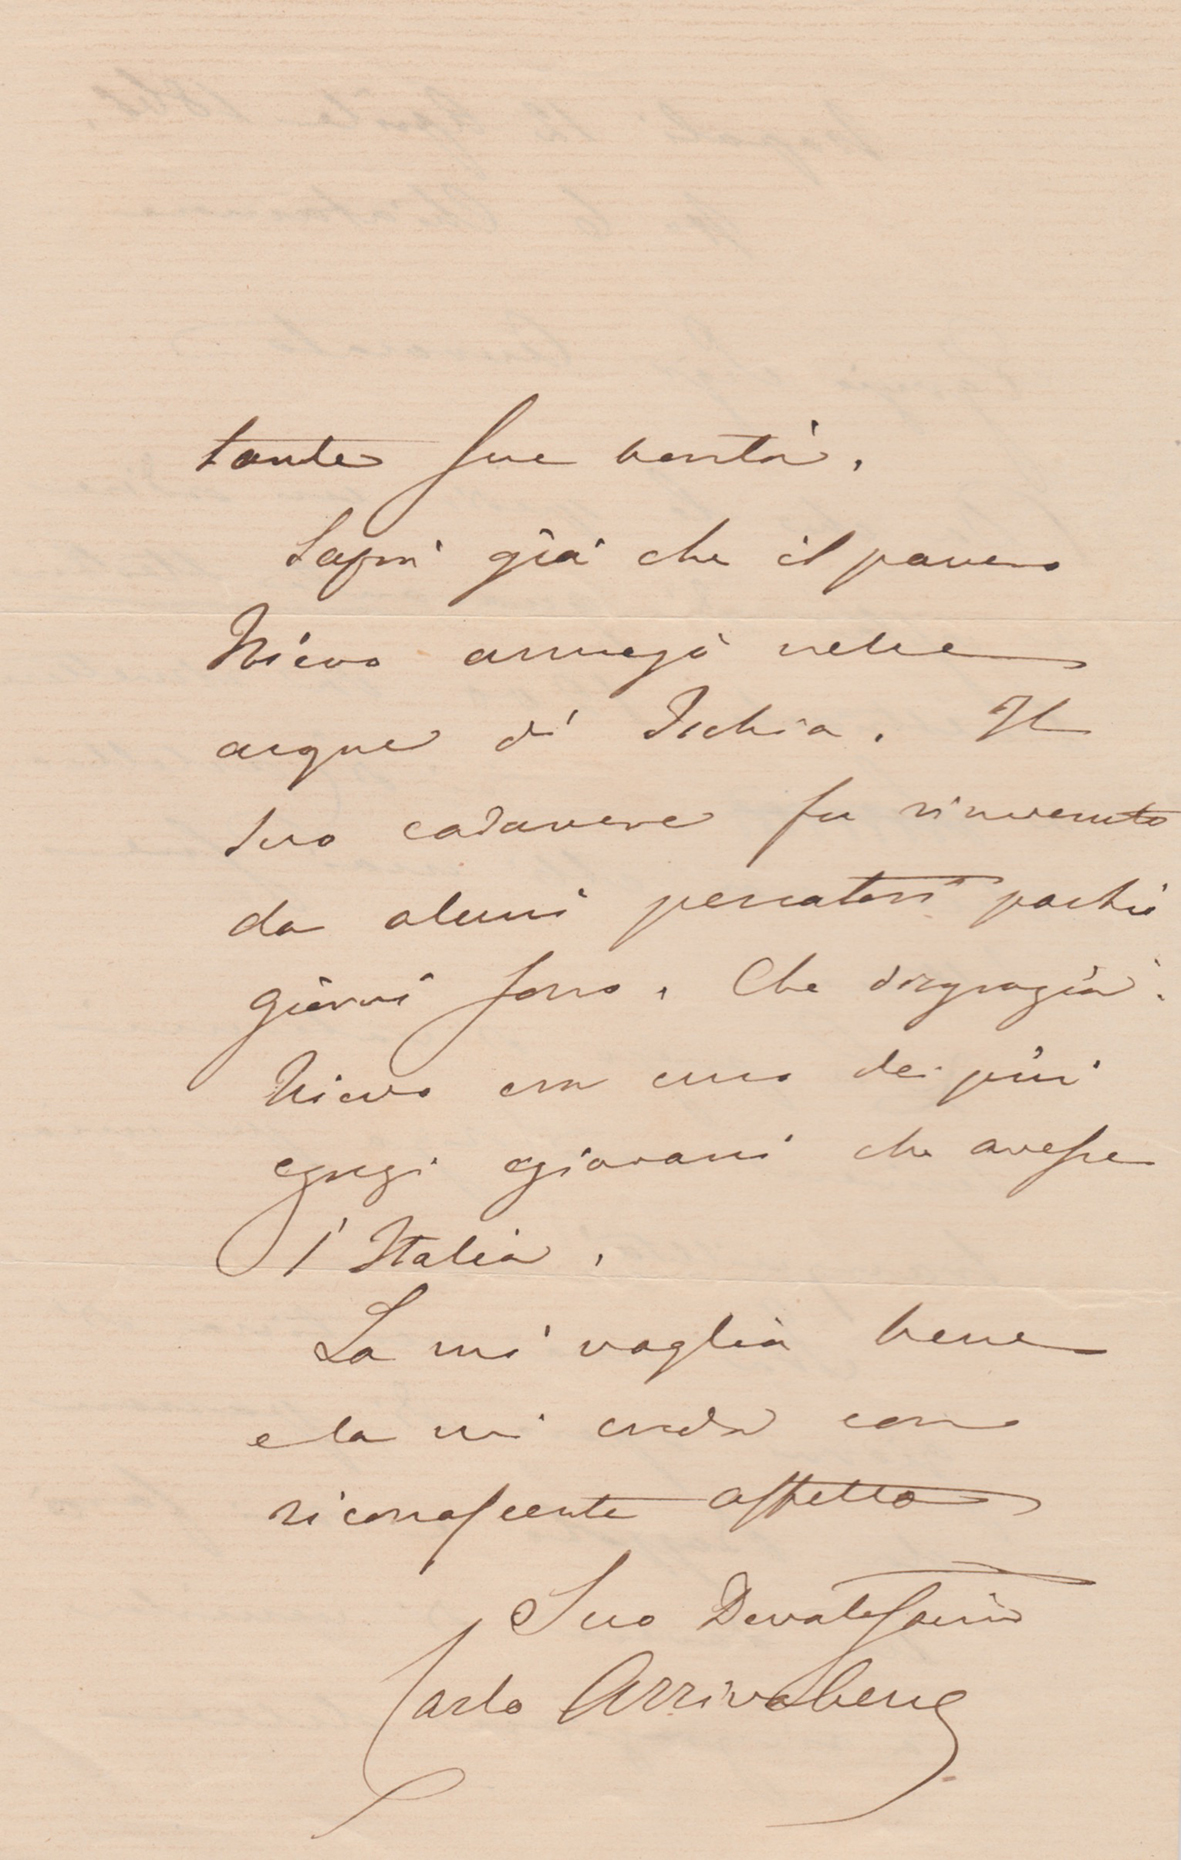 tante sue bontà.
Saprà già che il povero
Nievo annegò nelle
acque di Ischia. Il
suo cadavere fu rinvenuto
da alcuni pescatori pochi
giorni sono. Che disgrazia.
Nievo era uno dei più
egregi giovani che avesse
l'Italia.
La mi voglia bene
e la mi creda con
riconoscente affetto
Suo Devotissimo
Carlo Arrivabene